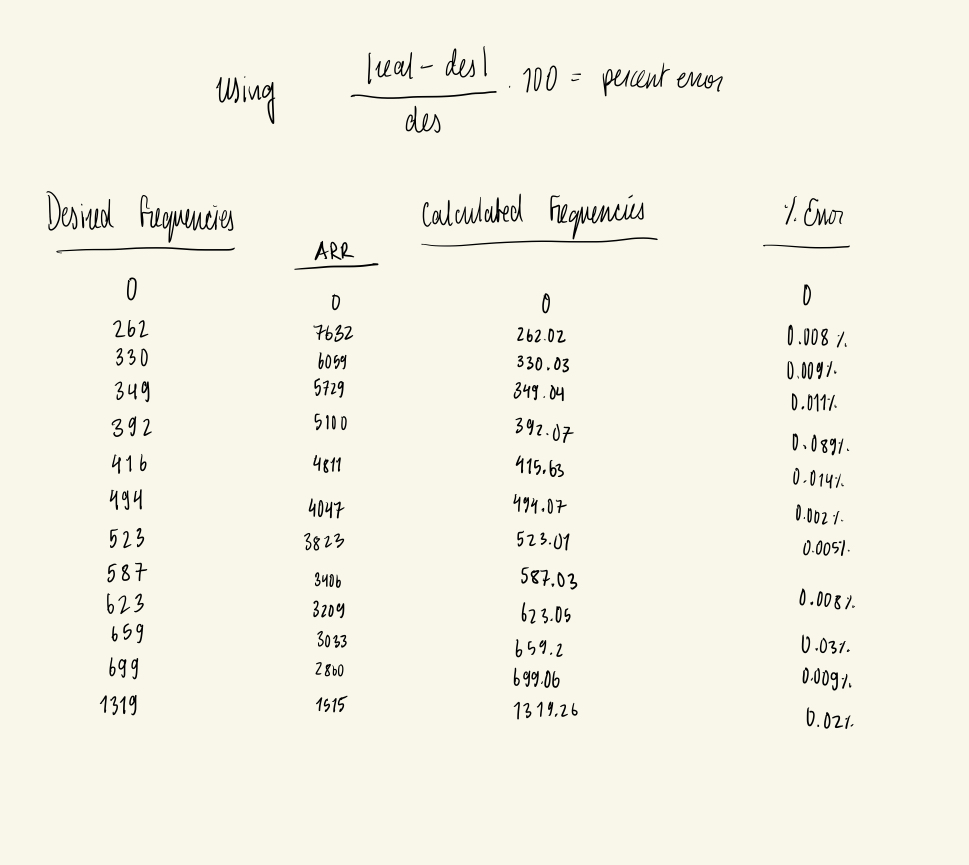 Using |real - des| / des . 100 = percent error
Desired frequencies ARR Calculated Frequencies % Error
0 0 0 0
262 7632 262.02 0.008 %
330 6059 330.03 0.009%
349 5729 349.04 0.011%
392 5100 392.07 0.089%
416 4811 415.63 0.014%
494 4047 494.07 0.002%
523 3823 523.01 0.005%
587 3406 587.03 0.008%
623 3209 623.05 0.03%
659 3033 659.2 0.009%
699 2860 699.06 0.02%
1319 1515 1319.26